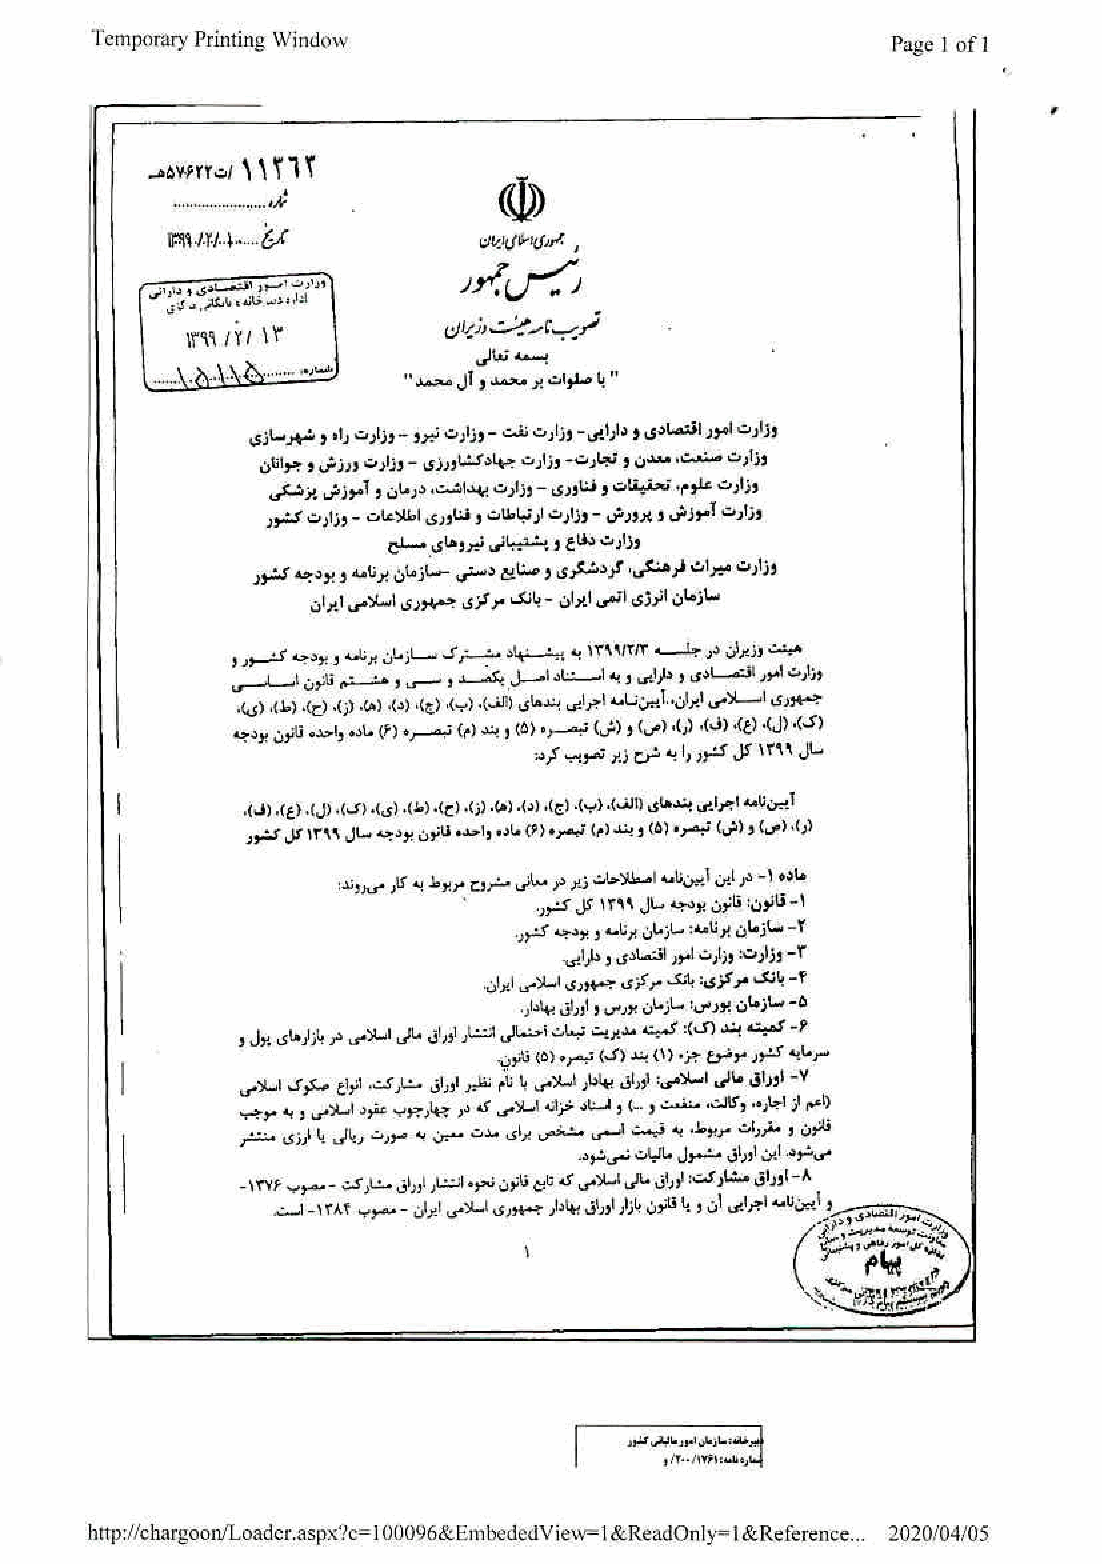 Temporary Printing Window
Page 1 of 1
۱۱۳۶۲/ت۵۷۶۲۲هـ
شماره
تاریخ ۱۳۹۹/۲/۱۰
جمهوری اسلامی ایران
رئیس جمهور
تصویب نامه هیئت وزیران
بسمه تعالی
"با صلوات بر محمد و آل محمد"
وزارت امور اقتصادی و دارائی
۱۳۹۹/۲/۱۳
شماره: ۱۰۵۱۱۵
وزارت امور اقتصادی و دارایی – وزارت نفت – وزارت نیرو – وزارت راه و شهرسازی
وزارت صنعت، معدن و تجارت – وزارت جهادکشاورزی – وزارت ورزش و جوانان
وزارت علوم، تحقیقات و فناوری – وزارت بهداشت، درمان و آموزش پزشکی
وزارت آموزش و پرورش – وزارت ارتباطات و فناوری اطلاعات – وزارت کشور
وزارت دفاع و پشتیبانی نیروهای مسلح
وزارت میراث فرهنگی، گردشگری و صنایع دستی – سازمان برنامه و بودجه کشور
سازمان انرژی اتمی ایران – بانک مرکزی جمهوری اسلامی ایران
هیئت وزیران در جلسه ۱۳۹۹/۲/۳ به پیشنهاد مشترک سازمان برنامه و بودجه کشور و
وزارت امور اقتصادی و دارایی و به استناد اصل یکصد و سی و هشتم قانون اساسی
جمهوری اسلامی ایران، آیین‌نامه اجرایی بندهای (الف)، (ب)، (ج)، (د)، (ه)، (ز)، (ح)، (ط)، (ی)،
(ک)، (ل)، (ع)، (ف)، (ر)، (ص) و (ش) تبصره (۵) و بند (م) تبصره (۶) ماده واحده قانون بودجه
سال ۱۳۹۹ کل کشور را به شرح زیر تصویب کرد:
آیین‌نامه اجرایی بندهای (الف)، (ب)، (ج)، (د)، (ه)، (ز)، (ح)، (ط)، (ی)، (ک)، (ل)، (ع)، (ف)،
(ر)، (ص) و (ش) تبصره (۵) و بند (م) تبصره (۶) ماده واحده قانون بودجه سال ۱۳۹۹ کل کشور
ماده ۱- در این آیین‌نامه اصطلاحات زیر در معانی مشروح مربوط به کار می‌روند:
۱- قانون: قانون بودجه سال ۱۳۹۹ کل کشور.
۲- سازمان برنامه: سازمان برنامه و بودجه کشور.
۳- وزارت: وزارت امور اقتصادی و دارایی.
۴- بانک مرکزی: بانک مرکزی جمهوری اسلامی ایران.
۵- سازمان بورس: سازمان بورس و اوراق بهادار.
۶- کمیته بند (ک): کمیته مدیریت تبعات احتمالی انتشار اوراق مالی اسلامی در بازارهای پول و
سرمایه کشور موضوع جزء (۱) بند (ک) تبصره (۵) قانون.
۷- اوراق مالی اسلامی: اوراق بهادار اسلامی با نام نظیر اوراق مشارکت، انواع صکوک اسلامی
(اعم از اجاره، وکالت، منفعت و ...) و اسناد خزانه اسلامی که در چهارچوب عقود اسلامی و به موجب
قانون و مقررات مربوط، به قیمت اسمی مشخص برای مدت معین به صورت ریالی یا ارزی منتشر
می‌شود. این اوراق مشمول مالیات نمی‌شود.
۸- اوراق مشارکت: اوراق مالی اسلامی که تابع قانون نحوه انتشار اوراق مشارکت – مصوب ۱۳۷۶-
و آیین‌نامه اجرایی آن و یا قانون بازار اوراق بهادار جمهوری اسلامی ایران – مصوب ۱۳۸۴- است.
۱
وزارت امور اقتصادی و دارایی
پیام
دبیرخانه: سازمان امور مالیاتی کشور
شماره نامه: ۲۰۰/۱۷۶۱/ و
http://chargoon/Loader.aspx?c=100096&EmbededView=1&ReadOnly=1&Reference... 2020/04/05